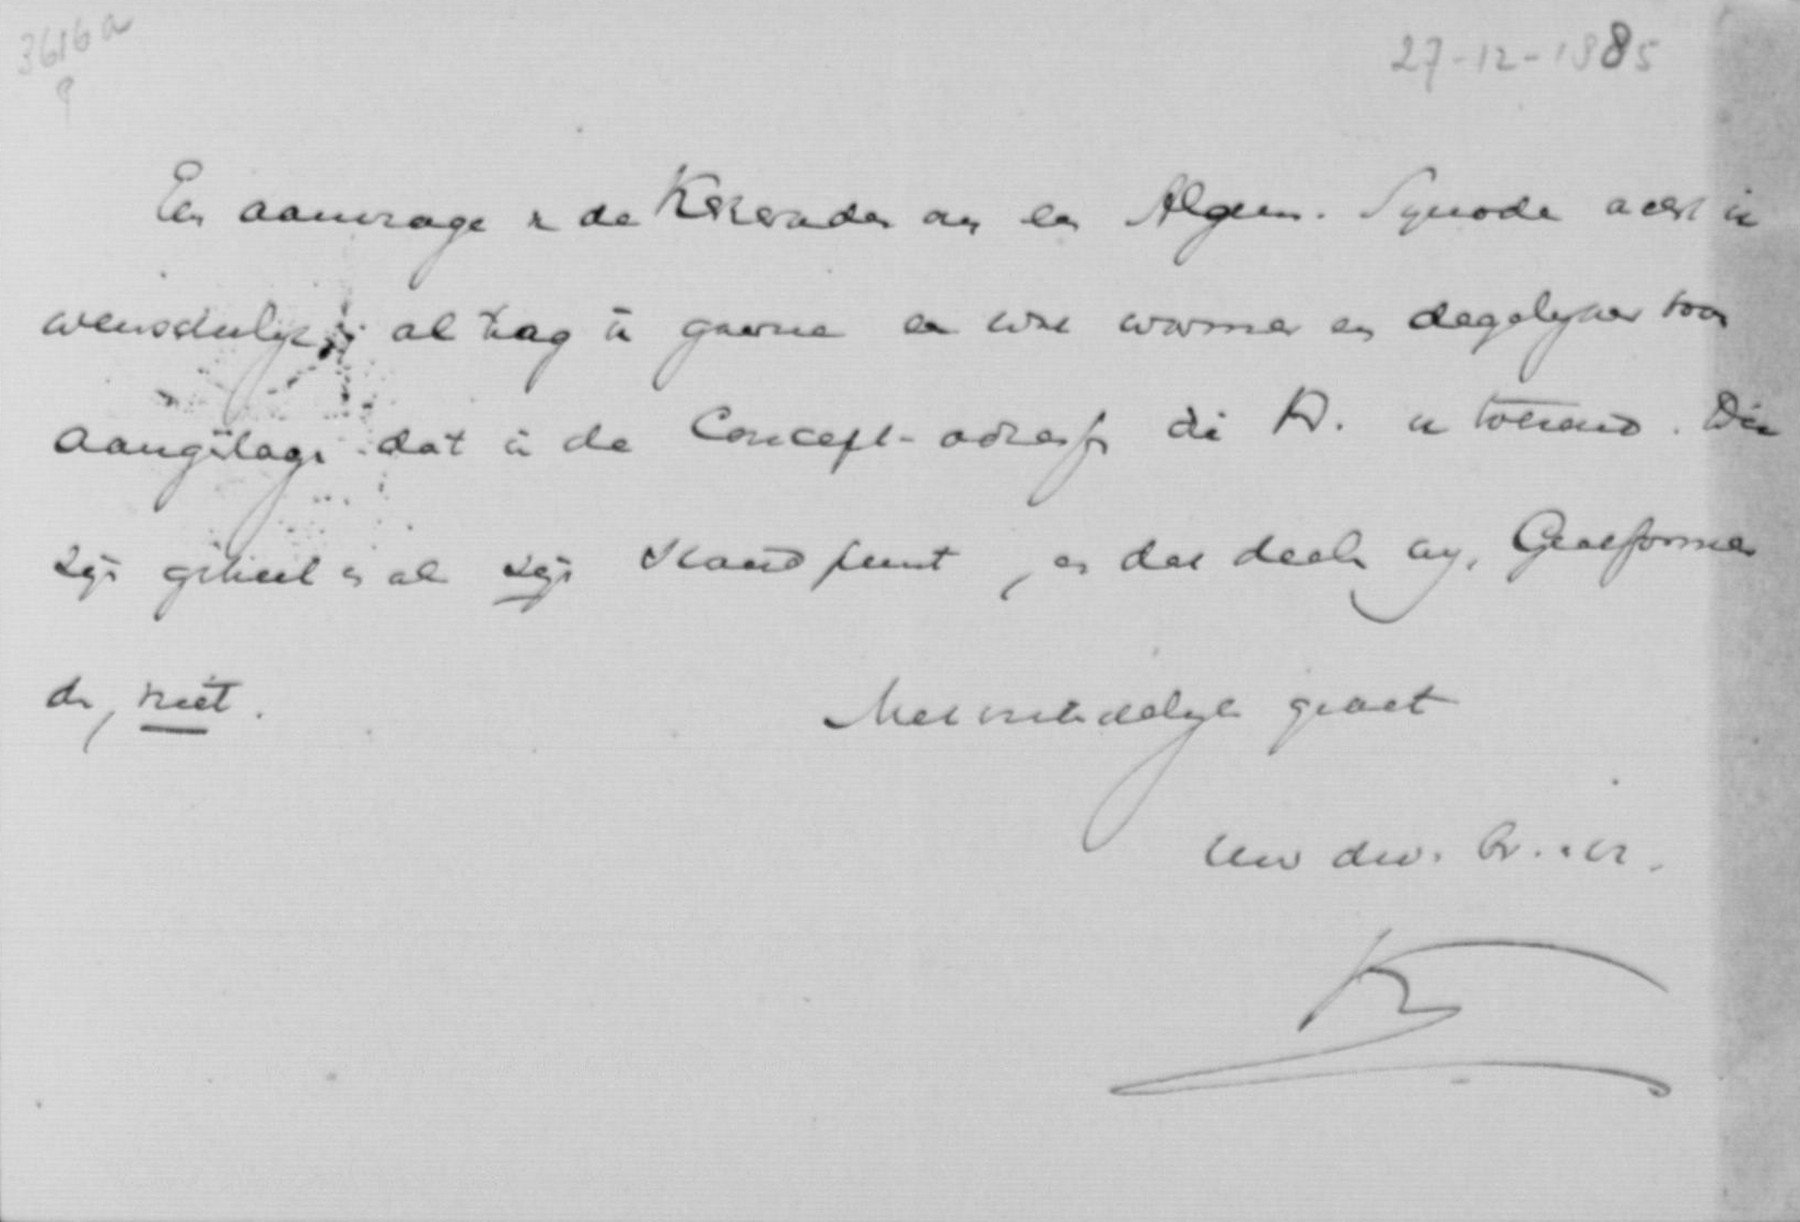 3616a
27-12-1885
Een aanvrage v de Kerkeraden aan een Algem. Synode acht ik
wenschelijk, al zag ik gaarne een wat warmer en degelijker toon
aangeslagen dat in de Concept-adres die K. u toezond. Die
zijn geheel en al zijn standpunt, en dat deelen wij, Gereformeer
den, niet.
Met vriendelijke groet
Uw dw. br. en vr.
K